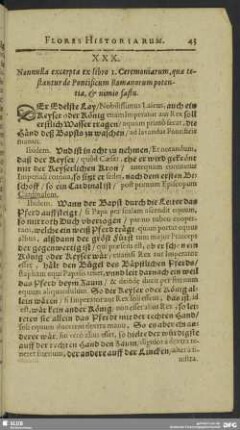 FLORES HISTORIARUM. 45
XXX.
Nonnulla excerpta ex libro 1. Ceremoniarum, quæ te-
stantur de Pontificum Romanorum poten-
tia, & nimio fastu.
DEr Edelste Lay/ Nobilissimus Laicus, auch ein
Keyser oder König etiamsi Imperator aut Rex soll
erstlich Wasser tragen/ aquam
Händ deß Bapsts zu waschen/ ad lavandas Pontificis
manus.
Ibidem. Und ist in acht zu nehmen/ Et notandum,
daß der Keyser/ quòd Cæsar, ehe er wird gekrönt
mit der Keyserlichen Kron/ antequam coronetur
Imperiali corona, so sitzt er sedet, nach dem ersten Bi-
schoff/ so ein Cardinal ist/ post primum Episcopum
Cardinalem.
Ibidem. Wann der Bapst durch die Leiter das
Pferd auffsteigt/ si Papa per scalam ascendit equum,
so mit roth Duch überzogen/ panno rubeo cooper-
tam, welche ein weiß Pferd trägt/ quam portat equus
albus, alßdann der gröst Fürst tum maior Princeps
der gegenwertig ist/ qui præsens est, ob er schon ein
König oder Keyser wär/ etiamsi Rex aut Imperator
esset, hält den Bügel des Bäpstlichen Pferds/
stapham equi Papalis tenet, und leit darnach ein weil
das Pferd beym Zaum/ & deinde ducit per frenum
equum aliquantulum. So der Keyser oder König al-
lein wären/ si Imperator aut Rex soli essent, das ist, id
est, wär kein ander König, non esset alius Rex, so lei-
teten sie allein das Pferd mit der rechten Hand/
soli equum ducerent dextra manu. So es aber ein an-
derer wär, so hielte der würdigste
auff der rechten Hand den Zaum, dignior à dextra te-
neret frenum, der andere auff der Lincken, alter à si-
nistra.